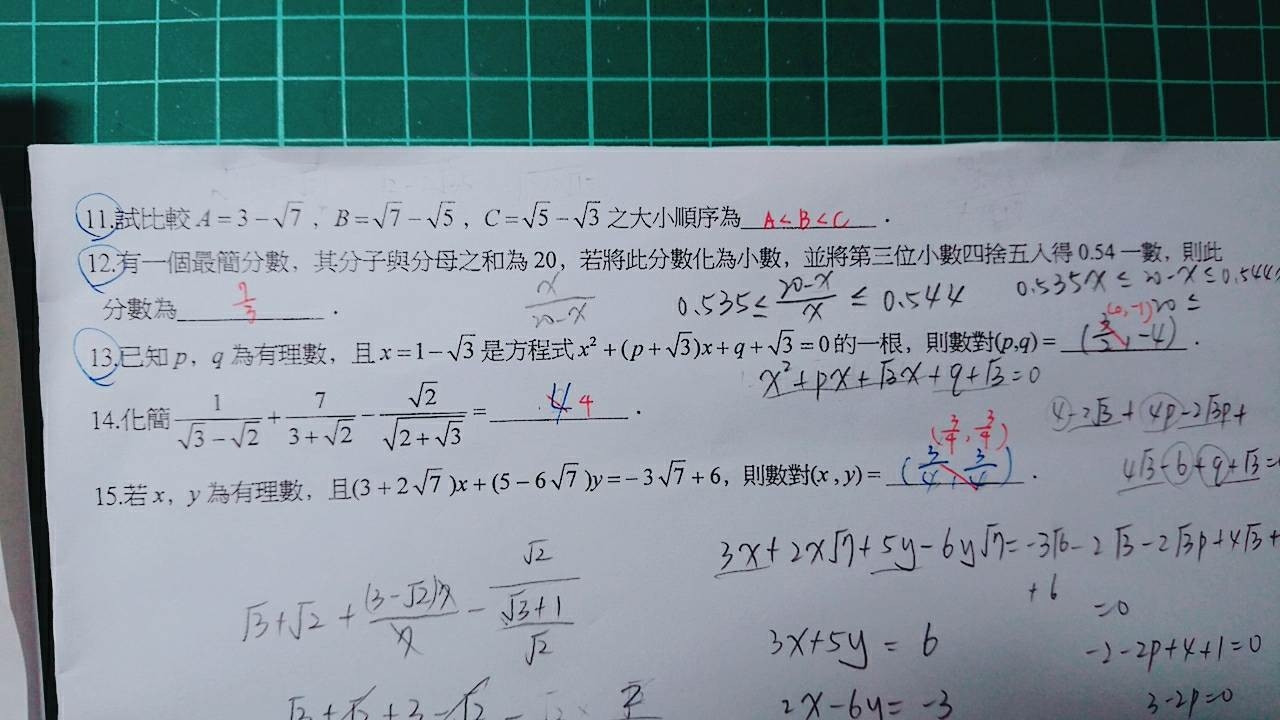 11.試比較 A = 3 − √7 , B = √7 − √5 , C = √5 − √3 之大小順序為 A < B < C .
12.有一個最簡分數，其分子與分母之和為 20，若將此分數化為小數，並將第三位小數四捨五入得 0.54 一數，則此
分數為 7/13 .
x/(20−x)
0.535 ≤ (20−x)/x ≤ 0.544
0.535x ≤ 20−x ≤ 0.544x
20 ≤
13.已知 p，q 為有理數，且 x = 1 − √3 是方程式 x² + (p + √3)x + q + √3 = 0 的一根，則數對(p,q) = (3/2, −4) .
x² + px + √3x + q + √3 = 0
14.化簡 1/(√3 − √2) + 7/(3 + √2) − √2/√(2 + √3) = 4 4 .
4−2√3 + 4p−2√3p +
(3/4, 3/4)
15.若 x，y 為有理數，且(3 + 2√7 )x + (5 − 6√7 )y = − 3√7 + 6，則數對(x , y) = (3/4, 3/4) .
4√3−6+q+√3=
3x + 2x√7 + 5y − 6y√7 = −3√6
+ 6
−2√3−2√3p+4√3+
=0
√3+√2 + (3−√2)7/7 − √2/((√3+1)/√2)
3x+5y = 6
−2−2p+4+1=0
√3+√2+3−√2 −
2x−6y = −3
3−2p=0